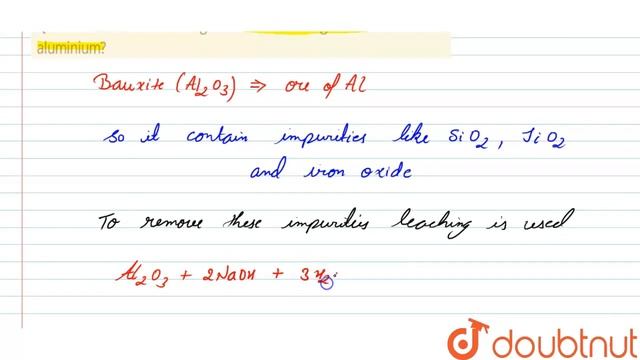 aluminium?
Bauxite (Al2O3) ⇒ ore of Al
So it contain impurities like SiO2, TiO2
and iron oxide
To remove these impurities leaching is used
Al2O3 + 2NaOH + 3H2
doubtnut